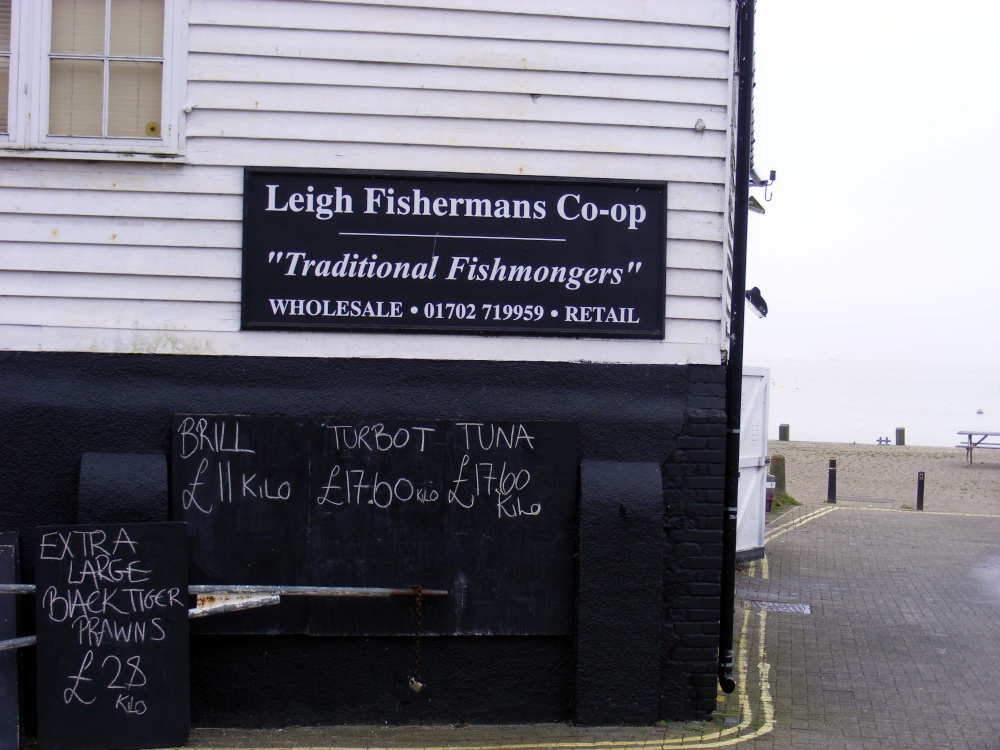 Leigh Fishermans Co-op
"Traditional Fishmongers"
WHOLESALE • 01702 719959 • RETAIL
BRILL
£11 KILO
TURBOT
£17.60 KILO
TUNA
£17.60
KILO
EXTRA
LARGE
BLACK TIGER
PRAWNS
£28
KILO